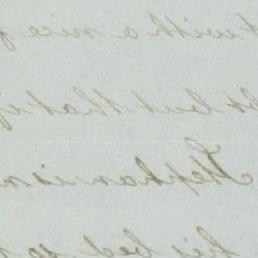 with a nice
but that
Stephan is
his bed so